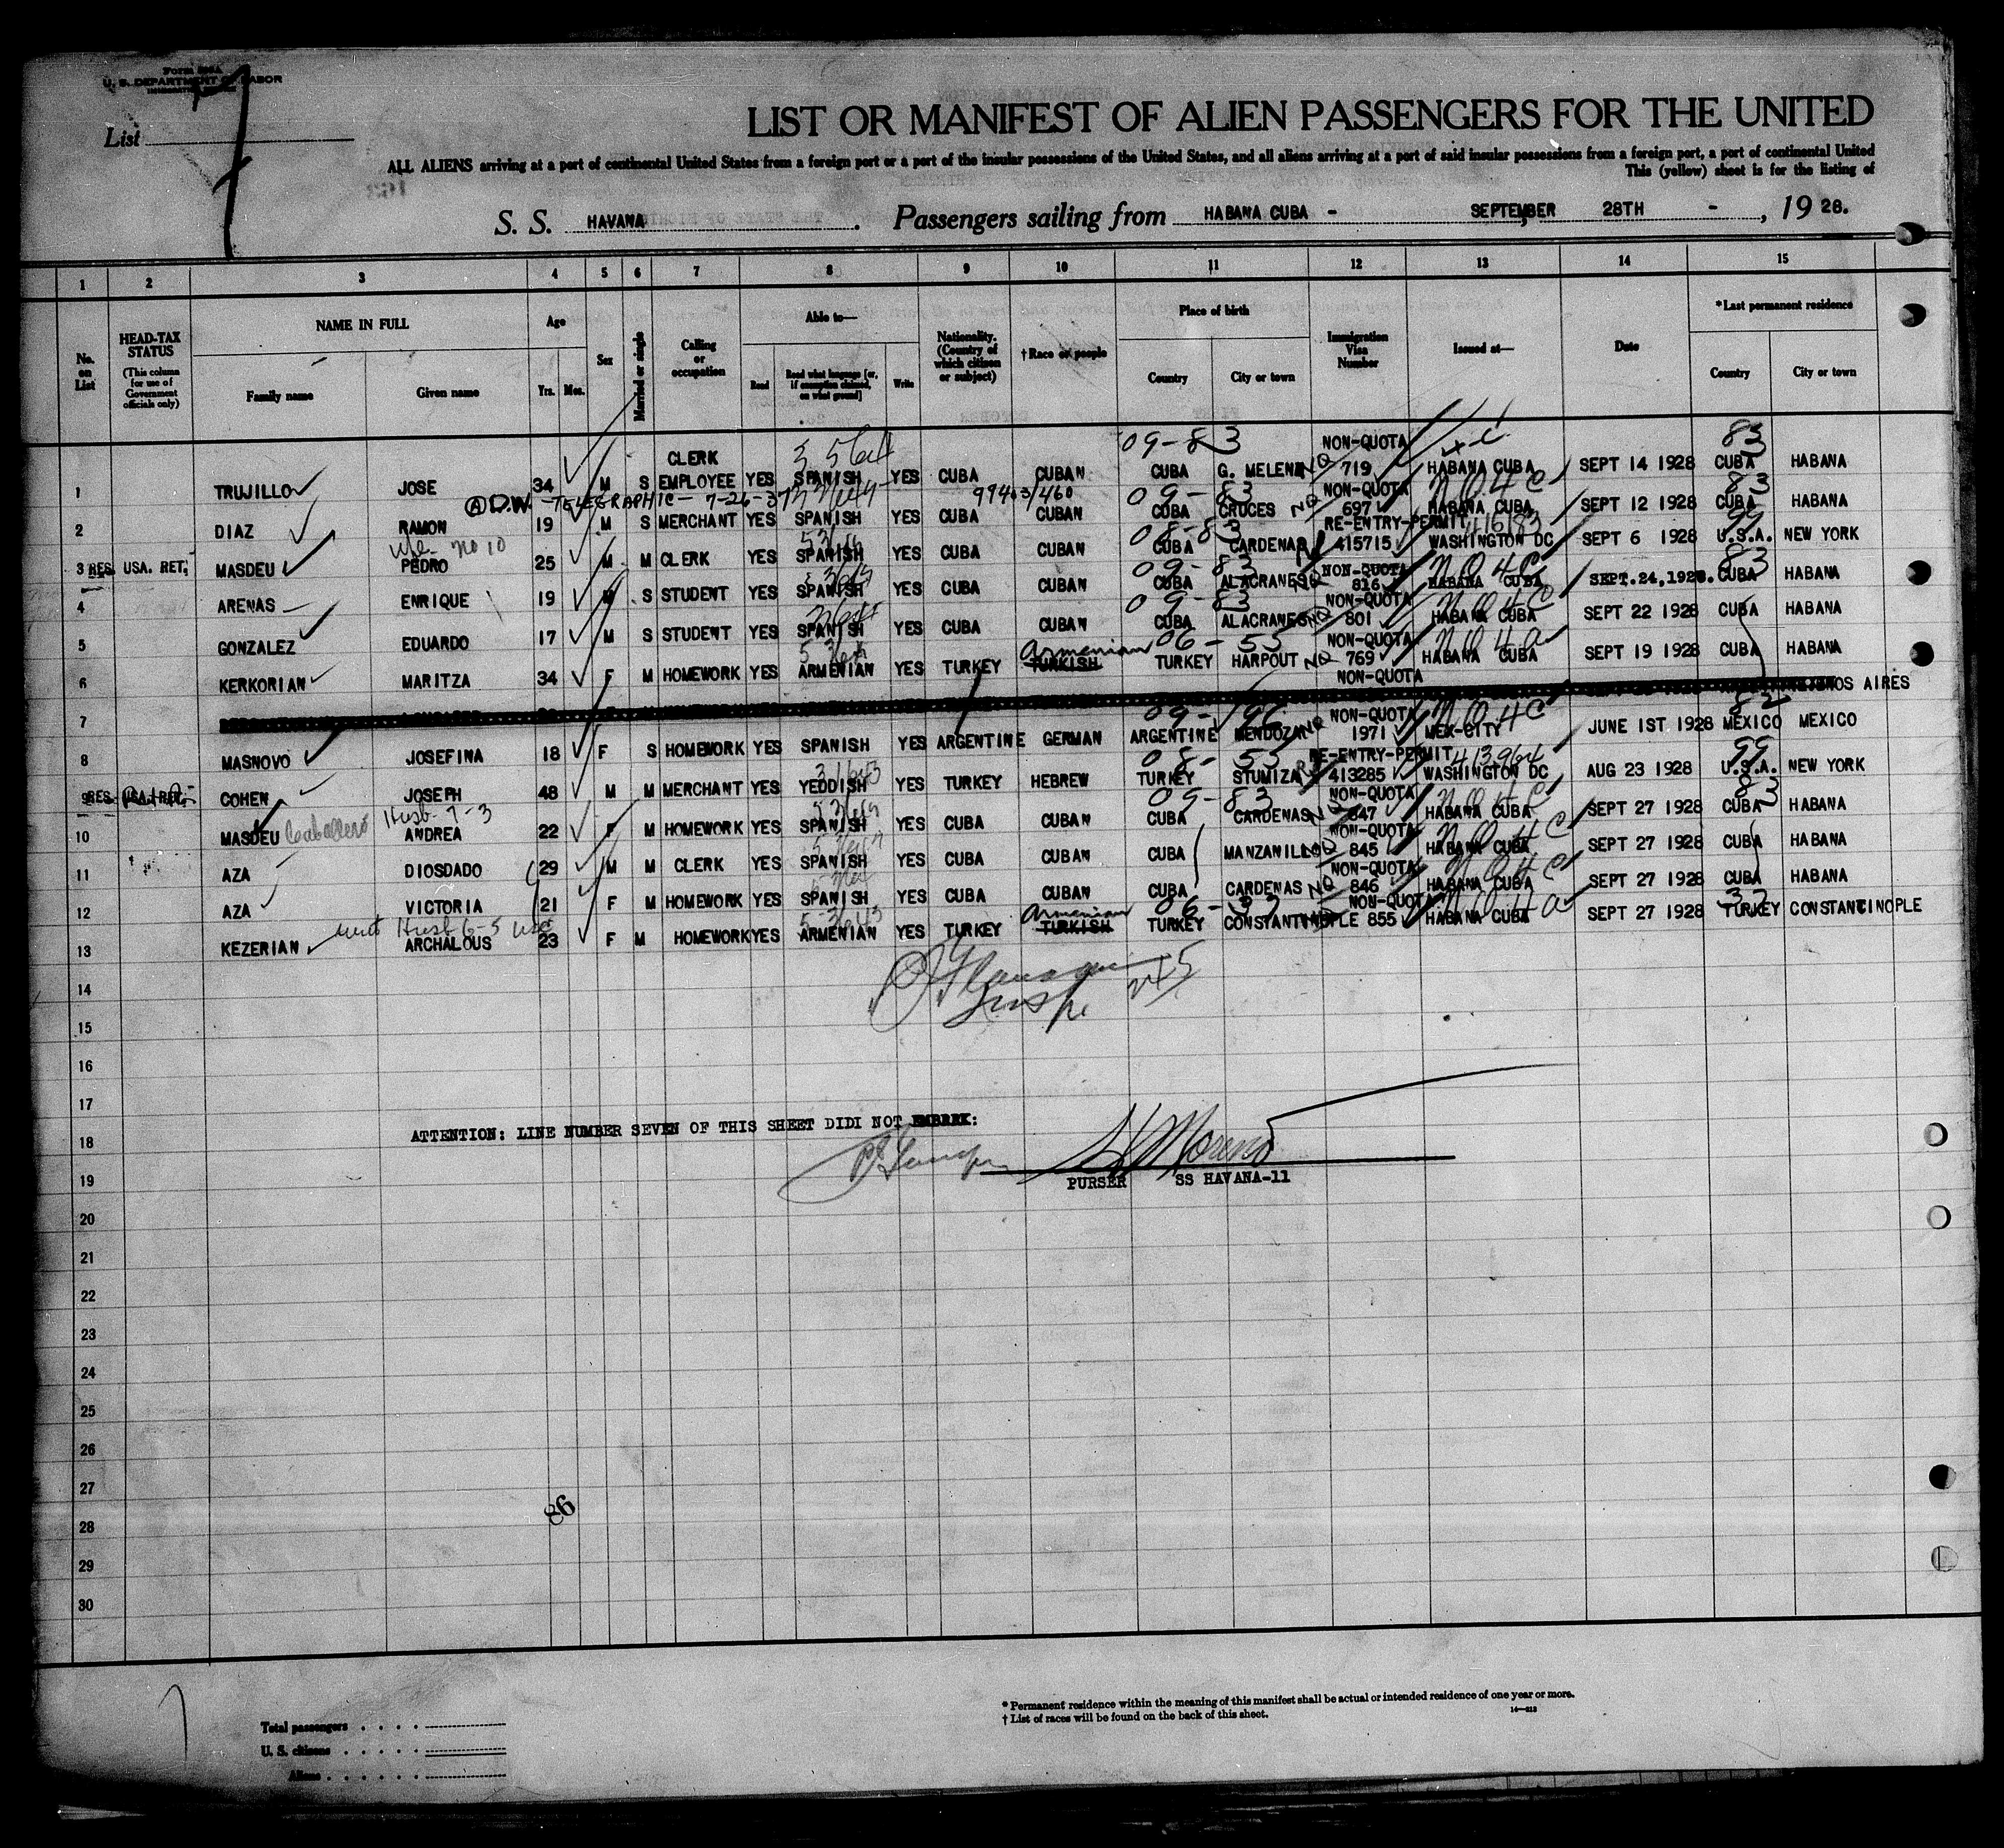 Form
U. S. DEPARTMENT OF LABOR
List
LIST OR MANIFEST OF ALIEN PASSENGERS FOR THE UNITED
ALL ALIENS arriving at a port of continental United States from a foreign port or a port of the insular possessions of the United States, and all aliens arriving at a port of said insular possessions from a foreign port, a port of continental United
This (yellow) sheet is for the listing of
S. S. HAVANA. Passengers sailing from HABANA CUBA - SEPTEMBER 28TH -, 1928.
1 2 3 4 5 6 7 8 9 10 11 12 13 14 15
No. on List
HEAD-TAX STATUS (This column for use of Government officials only)
NAME IN FULL Family name Given name
Age Yrs. Mos.
Sex
Married or single
Calling or occupation
Able to— Read Read what language [or, if exemption claimed, on what ground] Write
Nationality. (Country of which citizen or subject)
†Race or people
Place of birth Country City or town
Immigration Visa Number
Issued at—
Date
*Last permanent residence Country City or town
1 TRUJILLO JOSE 34 M S CLERK EMPLOYEE YES SPANISH YES CUBA CUBAN CUBA G. MELENA NON-QUOTA 719 HABANA CUBA SEPT 14 1928 CUBA HABANA
D.W. -TELEGRAPHIC- 7-26-37
2 DIAZ RAMON 19 M S MERCHANT YES SPANISH YES CUBA CUBAN CUBA CRUCES NON-QUOTA 697 HABANA CUBA SEPT 12 1928 CUBA HABANA
3 RES. USA. RET. MASDEU PEDRO 25 M M CLERK YES SPANISH YES CUBA CUBAN CUBA CARDENAS RE-ENTRY-PERMIT 415715 WASHINGTON DC SEPT 6 1928 U.S.A. NEW YORK
4 ARENAS ENRIQUE 19 M S STUDENT YES SPANISH YES CUBA CUBAN CUBA ALACRANES NON-QUOTA 816 HABANA CUBA SEPT.24,1928. CUBA HABANA
5 GONZALEZ EDUARDO 17 M S STUDENT YES SPANISH YES CUBA CUBAN CUBA ALACRANES NON-QUOTA 801 HABANA CUBA SEPT 22 1928 CUBA HABANA
6 KERKORIAN MARITZA 34 F M HOMEWORK YES ARMENIAN YES TURKEY TURKISH Armenian TURKEY HARPOUT NON-QUOTA 769 HABANA CUBA SEPT 19 1928 CUBA HABANA
7 NON-QUOTA AIRES
8 MASNOVO JOSEFINA 18 F S HOMEWORK YES SPANISH YES ARGENTINE GERMAN ARGENTINE MENDOZA NON-QUOTA 1971 MEX-CITY JUNE 1ST 1928 MEXICO MEXICO
9 RES. USA. RET. COHEN JOSEPH 48 M M MERCHANT YES YEDDISH YES TURKEY HEBREW TURKEY STUMIZA RE-ENTRY-PERMIT 413285 WASHINGTON DC AUG 23 1928 U.S.A. NEW YORK
10 MASDEU Caballero ANDREA 22 F M HOMEWORK YES SPANISH YES CUBA CUBAN CUBA CARDENAS NON-QUOTA 847 HABANA CUBA SEPT 27 1928 CUBA HABANA
11 AZA DIOSDADO 29 M M CLERK YES SPANISH YES CUBA CUBAN CUBA MANZANILLO NON-QUOTA 845 HABANA CUBA SEPT 27 1928 CUBA HABANA
12 AZA VICTORIA 21 F M HOMEWORK YES SPANISH YES CUBA CUBAN CUBA CARDENAS NON-QUOTA 846 HABANA CUBA SEPT 27 1928 CUBA HABANA
13 KEZERIAN ARCHALOUS 23 F M HOMEWORK YES ARMENIAN YES TURKEY TURKISH Armenian TURKEY CONSTANTINOPLE NON-QUOTA 855 HABANA CUBA SEPT 27 1928 TURKEY CONSTANTINOPLE
14
15
16
17
18 ATTENTION: LINE NUMBER SEVEN OF THIS SHEET DIDI NOT EMBARK:
H Moreno
19 PURSER SS HAVANA-11
20
21
22
23
24
25
26
27
86
28
29
30
* Permanent residence within the meaning of this manifest shall be actual or intended residence of one year or more.
† List of races will be found on the back of this sheet.
Total passengers
U. S. citizens
Aliens